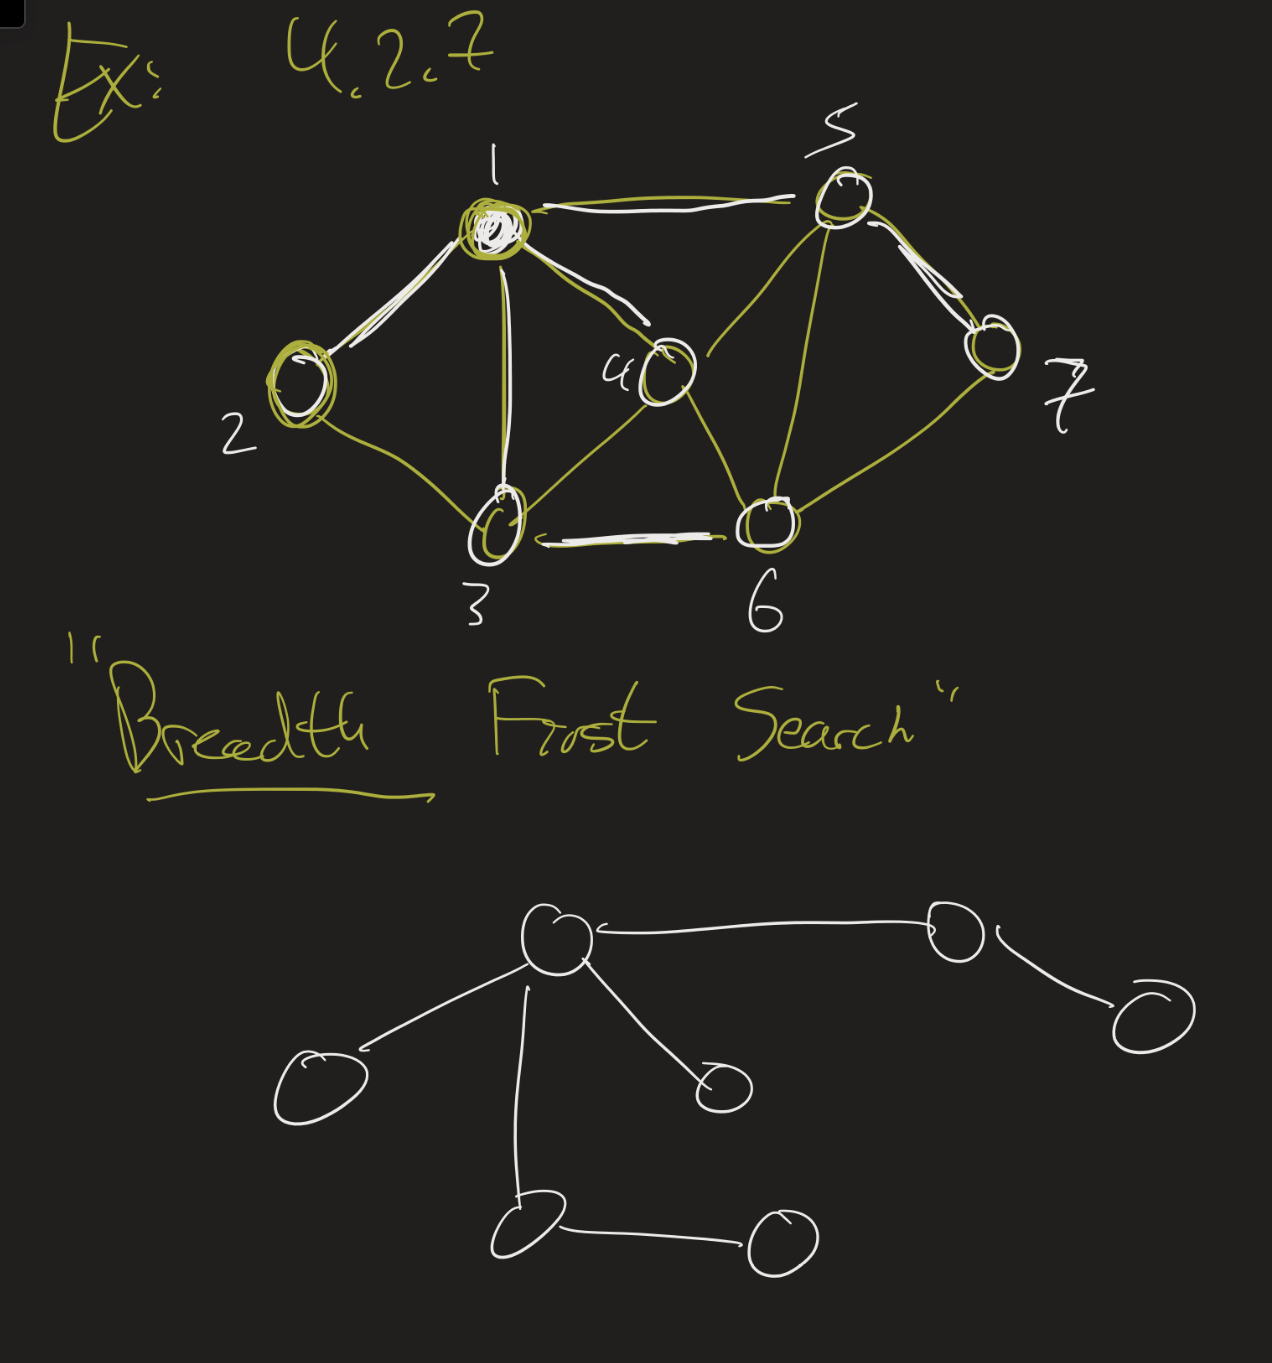 Ex: 4.2.7
1
5
4
2
7
3
6
"Breadth First Search"